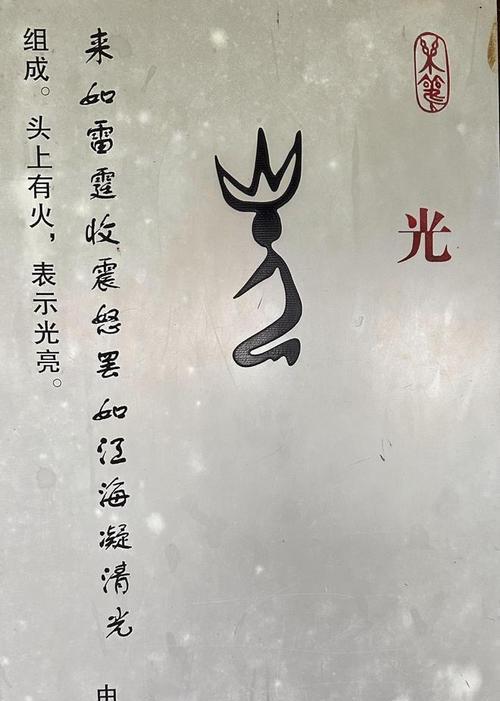 光
来如雷霆收震怒罢如江海凝清光 由
组成。头上有火，表示光亮。